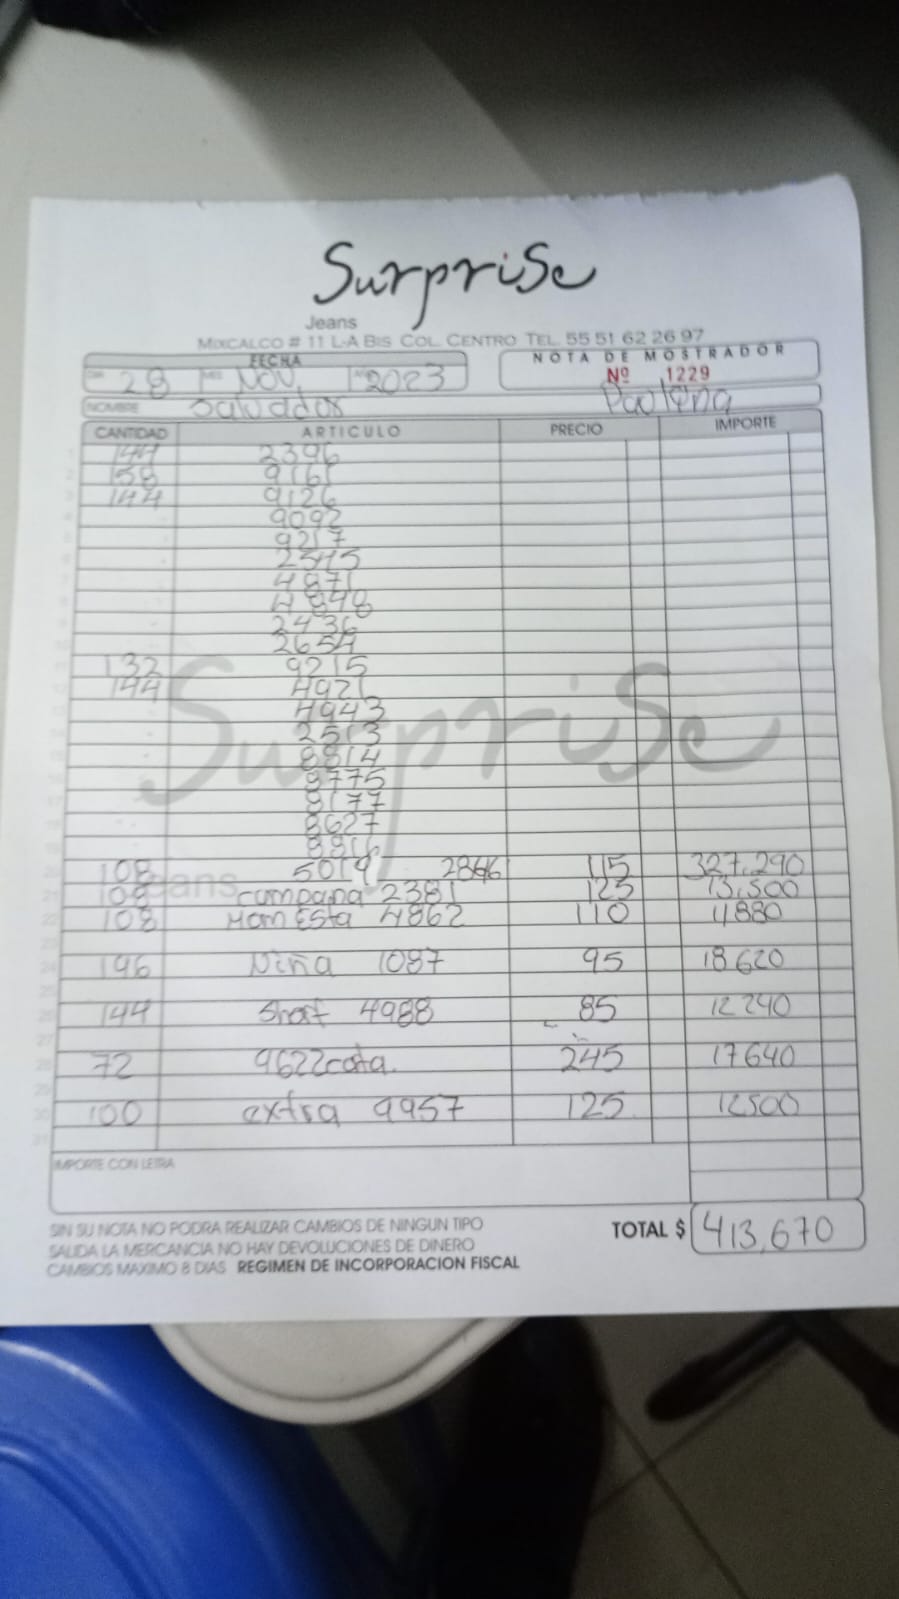 Surprise
Jeans
MIXCALCO # 11 L-A BIS COL. CENTRO TEL. 55 51 62 26 97
FECHA NOTA DE MOSTRADOR
DIA 28 MES NOV. AÑO 2023 Nº 1229
NOMBRE Salvador Paulina
CANTIDAD ARTICULO PRECIO IMPORTE
144 2396
158 9161
144 9126
9092
9217
2515
4871
4848
2436
2654
132 9215
144 4921
4943
2513
8814
9775
9177
8627
108 5019 2846 115 327,290
108 campana 2381 125 13,500
108 Mom Esta 4862 110 11,880
196 Niña 1087 95 18620
144 Short 4988 85 12240
72 9622 245 17640
100 extra 9957 125 12500
IMPORTE CON LETRA
SIN SU NOTA NO PODRA REALIZAR CAMBIOS DE NINGUN TIPO
SALIDA LA MERCANCIA NO HAY DEVOLUCIONES DE DINERO
CAMBIOS MAXIMO 8 DIAS REGIMEN DE INCORPORACION FISCAL
TOTAL $ 413,670